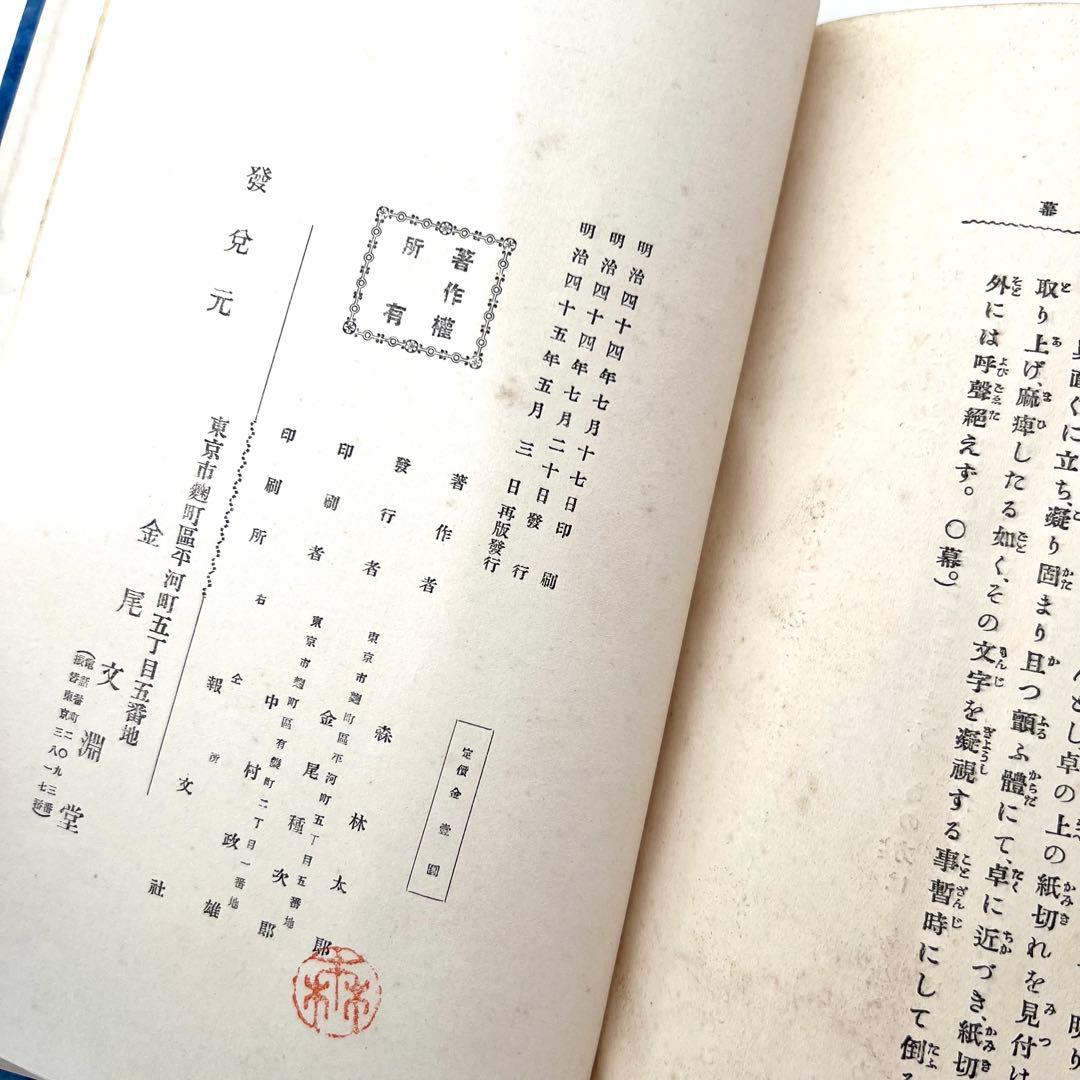 幕
具直ぐに立ち、凝り固まり且つ顫ふ體にて、卓に近づき、紙切
取り上げ、麻痺したる如く、その文字を凝視する事暫時にして倒
外には呼聲絶えず。〇幕。)
んとし
卓の上の紙切れを見付け
明り
明治四十四年七月十七日印刷
明治四十四年七月二十日發行
明治四十五年五月三日再版發行
著作權所有
定價金壹圓
著作者 森林太郎
東京市麴町區平河町五丁目五番地
發行者 金尾種次郎
東京市麴町區有樂町二丁目一番地
印刷者 中村政雄
右仝所
印刷所 報文社
發兌元
東京市麴町區平河町五丁目五番地
金尾文淵堂
(電話番町二〇一九三番
振替東京三八七番)